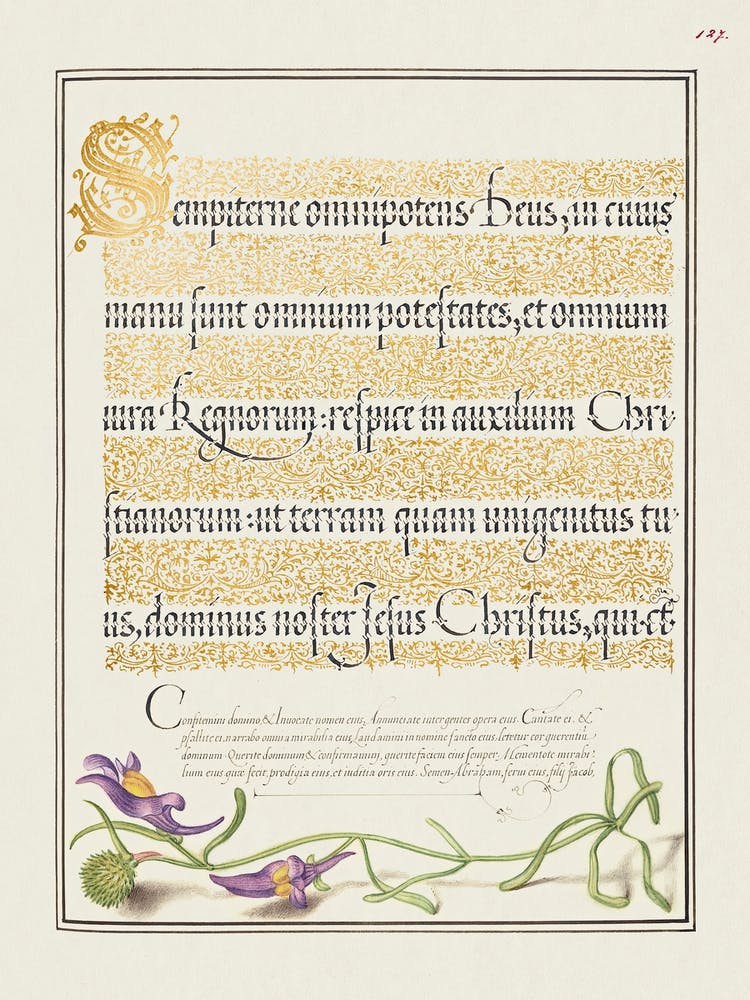 127.
Sempiterne omnipotens Deus, in cuius
manu sunt omnium potestates, et omnium
iura Regnorum: respice in auxilium Chri
stianorum: ut terram quam unigenitus tu
us, dominus noster Jesus Christus, qui ct
Confitemini domino, & Invocate nomen eius, Annunciate inter gentes opera eius. Cantate ei, &
psallite ei, narrabo omnia mirabilia eius, Laudamini in nomine sancto eius, letetur cor querentiū
dominum. Querite dominum, & confirmamini, querite faciem eius semper. Mementote mirabi-
lium eius quæ fecit, prodigia eius, et iuditia oris eius. Semen Abraham, serui eius, filij Jacob,